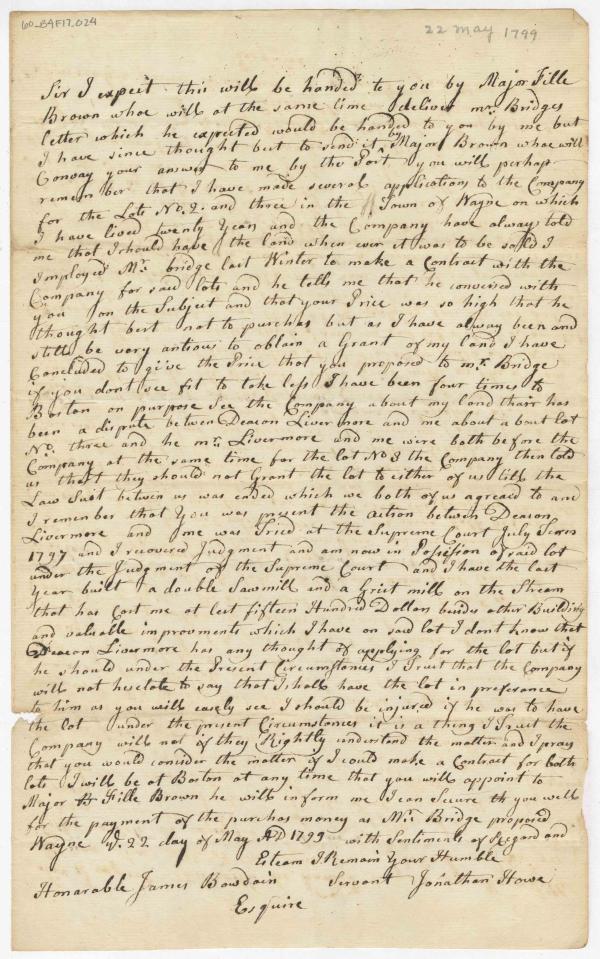 60_B4F17.024
22 May 1799
Sir I expect this will be handed to you by Major Fille
Brown whoe will at the same time deliver mr. Bridges
letter which he expected would be handed to you by me but
I have since thought best to send it ^ Major Brown whoe will
Convay your answer to me by the Post you will perhaps
remember that I have made several applications to the Company
for the Lots No. 2. and three in the Town of Wayne on which
I have lived Twenty Years and the Company have alway told
me that I should have the land when ever it was to be sold I
Imployed Mr. bridge last Winter to make a Contract with the
Company for said lots and he tells me that he conversd with
you on the Subject and that your Price was so high that he
thought best not to purchas but as I have alway been and
still be very antious to obtain a Grant of my land I have
Concluded to give the Price that you proposed to mr. Bridge
if you dont see fit to take less I have been four times to
Boston on purpose See the Company about my land thair has
been a dispute betwen Deacon Livermore and me about a bout lot
No. three and he mr. Livermore and me were both before the
Company at the same time for the lot No 3 the Company then told
us that they should not Grant the lot to either of us till the
Law Sute betwen us was ended which we both of us agread to and
I remember that you was present the action betwen Deacon
Livermore and me was Tried at the Supreme Court July Term
1797 and I recovered Judgment and am now in Possesion of said lot
under the Judgment of the Supreme Court and I have the last
Year built a double Sawmill and a Grist mill on the Stream
that has Cost me at lest fifteen Hundred Dollars besides other Buildings
and valuable improvments which I have on said lot I dont know that
Deacon Livermore has any thought of applying for the lot but if
he should under the Present Circumstances I Trust that the Company
will not hesetate to say that I shall have the lot in preferance
to him as you will easely see I should be injured if he was to have
the lot under the present Circumstances it is a thing I Trust the
Company will not if they Rightly understand the matter and I pray
that you would consider the matter if I could make a Contract for both
lots I will be at Boston at any time that you will appoint to
Major Fille Brown he will inform me I can Secure th you well
for the payment of the purchas money as Mr. Bridge proposed
Wayne 22 day of May AD 1799 with Sentiments of Regard and
Esteam I Remain Your Humble
Honarable James Bowdoin Servant Jonathan Howe
Esquire